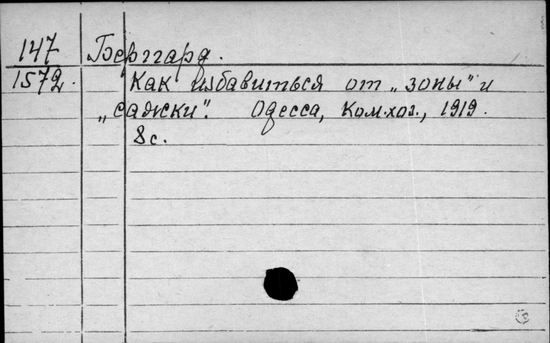 147 Бергард.
1572. Как избавиться от „зоны" и
„сажки". Одесса, Ком.хоз., 1919.
8 с.